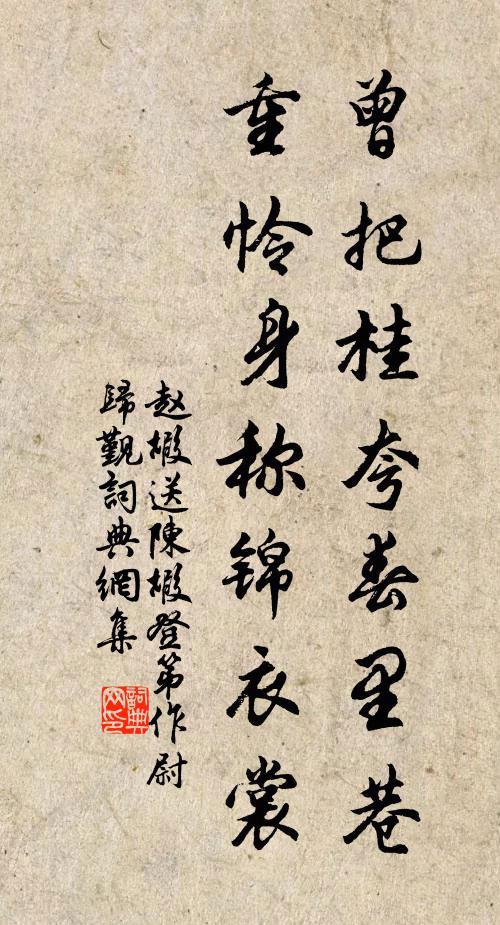 曾把桂夸春里巷
重怜身称锦衣裳
赵嘏送陳嘏登第作尉
歸觐詞典網集
詞典网印